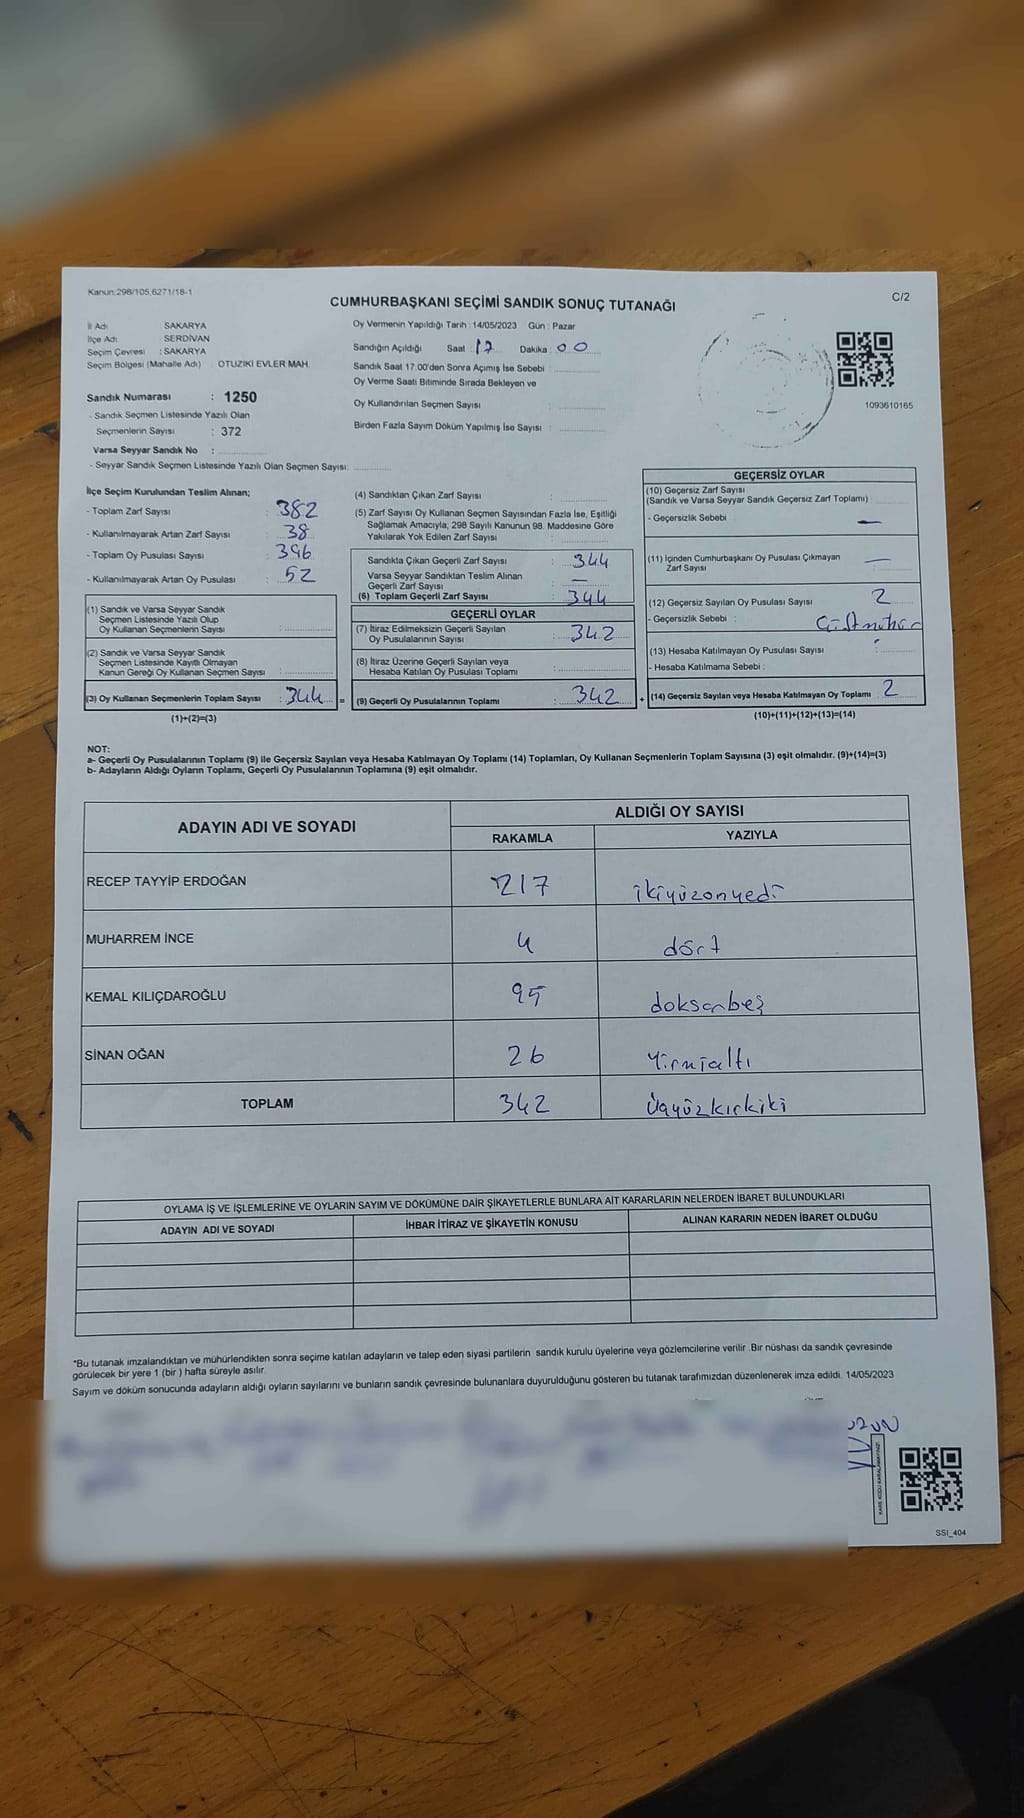 Kanun:298/105,6271/18-1
C/2
CUMHURBAŞKANI SEÇİMİ SANDIK SONUÇ TUTANAĞI
İl Adı SAKARYA
İlçe Adı SERDİVAN
Seçim Çevresi : SAKARYA
Seçim Bölgesi (Mahalle Adı) . OTUZIKI EVLER MAH.
Sandık Numarası : 1250
- Sandık Seçmen Listesinde Yazılı Olan
Seçmenlerin Sayısı : 372
Varsa Seyyar Sandık No :
- Seyyar Sandık Seçmen Listesinde Yazılı Olan Seçmen Sayısı:
Oy Vermenin Yapıldığı Tarih :14/05/2023 Gün : Pazar
Sandığın Açıldığı Saat : 17 Dakika : 00
Sandık Saat 17:00'den Sonra Açımış İse Sebebi :
Oy Verme Saati Bitiminde Sırada Bekleyen ve
Oy Kullandırılan Seçmen Sayısı :
Birden Fazla Sayım Döküm Yapılmış İse Sayısı :
1093610165
İlçe Seçim Kurulundan Teslim Alınan;
- Toplam Zarf Sayısı : 382
- Kullanılmayarak Artan Zarf Sayısı : 38
- Toplam Oy Pusulası Sayısı : 396
- Kullanılmayarak Artan Oy Pusulası : 52
(1) Sandık ve Varsa Seyyar Sandık
Seçmen Listesinde Yazılı Olup
Oy Kullanan Seçmenlerin Sayısı :
(2) Sandık ve Varsa Seyyar Sandık
Seçmen Listesinde Kayıtlı Olmayan
Kanun Gereği Oy Kullanan Seçmen Sayısı :
(3) Oy Kullanan Seçmenlerin Toplam Sayısı : 344 =
(1)+(2)=(3)
(4) Sandıktan Çıkan Zarf Sayısı :
(5) Zarf Sayısı Oy Kullanan Seçmen Sayısından Fazla İse, Eşitliği
Sağlamak Amacıyla; 298 Sayılı Kanunun 98. Maddesine Göre
Yakılarak Yok Edilen Zarf Sayısı :
Sandıkta Çıkan Geçerli Zarf Sayısı : 344
Varsa Seyyar Sandıktan Teslim Alınan
Geçerli Zarf Sayısı : —
(6) Toplam Geçerli Zarf Sayısı : 344
GEÇERLİ OYLAR
(7) İtiraz Edilmeksizin Geçerli Sayılan
Oy Pusulalarının Sayısı : 342
(8) İtiraz Üzerine Geçerli Sayılan veya
Hesaba Katılan Oy Pusulası Toplamı :
(9) Geçerli Oy Pusulalarının Toplamı : 342 +
GEÇERSİZ OYLAR
(10) Geçersiz Zarf Sayısı
(Sandık ve Varsa Seyyar Sandık Geçersiz Zarf Toplamı) :
- Geçersizlik Sebebi : —
(11) İçinden Cumhurbaşkanı Oy Pusulası Çıkmayan
Zarf Sayısı : —
(12) Geçersiz Sayılan Oy Pusulası Sayısı : 2
- Geçersizlik Sebebi :
(13) Hesaba Katılmayan Oy Pusulası Sayısı :
- Hesaba Katılmama Sebebi :
(14) Geçersiz Sayılan veya Hesaba Katılmayan Oy Toplamı : 2
(10)+(11)+(12)+(13)=(14)
NOT:
a- Geçerli Oy Pusulalarının Toplamı (9) ile Geçersiz Sayılan veya Hesaba Katılmayan Oy Toplamı (14) Toplamları, Oy Kullanan Seçmenlerin Toplam Sayısına (3) eşit olmalıdır. (9)+(14)=(3)
b- Adayların Aldığı Oyların Toplamı, Geçerli Oy Pusulalarının Toplamına (9) eşit olmalıdır.
ADAYIN ADI VE SOYADI ALDIĞI OY SAYISI
RAKAMLA YAZIYLA
RECEP TAYYİP ERDOĞAN 217 ikiyüzonyedi
MUHARREM İNCE 4 dört
KEMAL KILIÇDAROĞLU 95 doksanbeş
SİNAN OĞAN 26 Yirmialtı
TOPLAM 342 üçyüzkırkiki
OYLAMA İŞ VE İŞLEMLERİNE VE OYLARIN SAYIM VE DÖKÜMÜNE DAİR ŞİKAYETLERLE BUNLARA AİT KARARLARIN NELERDEN İBARET BULUNDUKLARI
ADAYIN ADI VE SOYADI İHBAR İTİRAZ VE ŞİKAYETİN KONUSU ALINAN KARARIN NEDEN İBARET OLDUĞU
*Bu tutanak imzalandıktan ve mühürlendikten sonra seçime katılan adayların ve talep eden siyasi partilerin sandık kurulu üyelerine veya gözlemcilerine verilir .Bir nüshası da sandık çevresinde
görülecek bir yere 1 (bir ) hafta süreyle asılır.
Sayım ve döküm sonucunda adayların aldığı oyların sayılarını ve bunların sandık çevresinde bulunanlara duyurulduğunu gösteren bu tutanak tarafımızdan düzenlenerek imza edildi. 14/05/2023
UZUN
KARE KODU KARALAMAYINIZ!
SSI_404